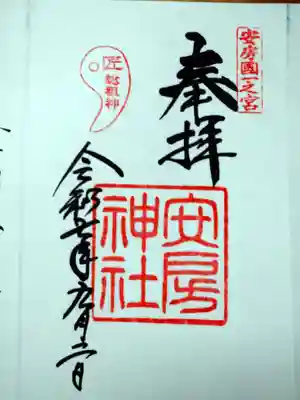 安房國一之宮
奉拝
安房神社
匠 総祖神
令和七年九月二日